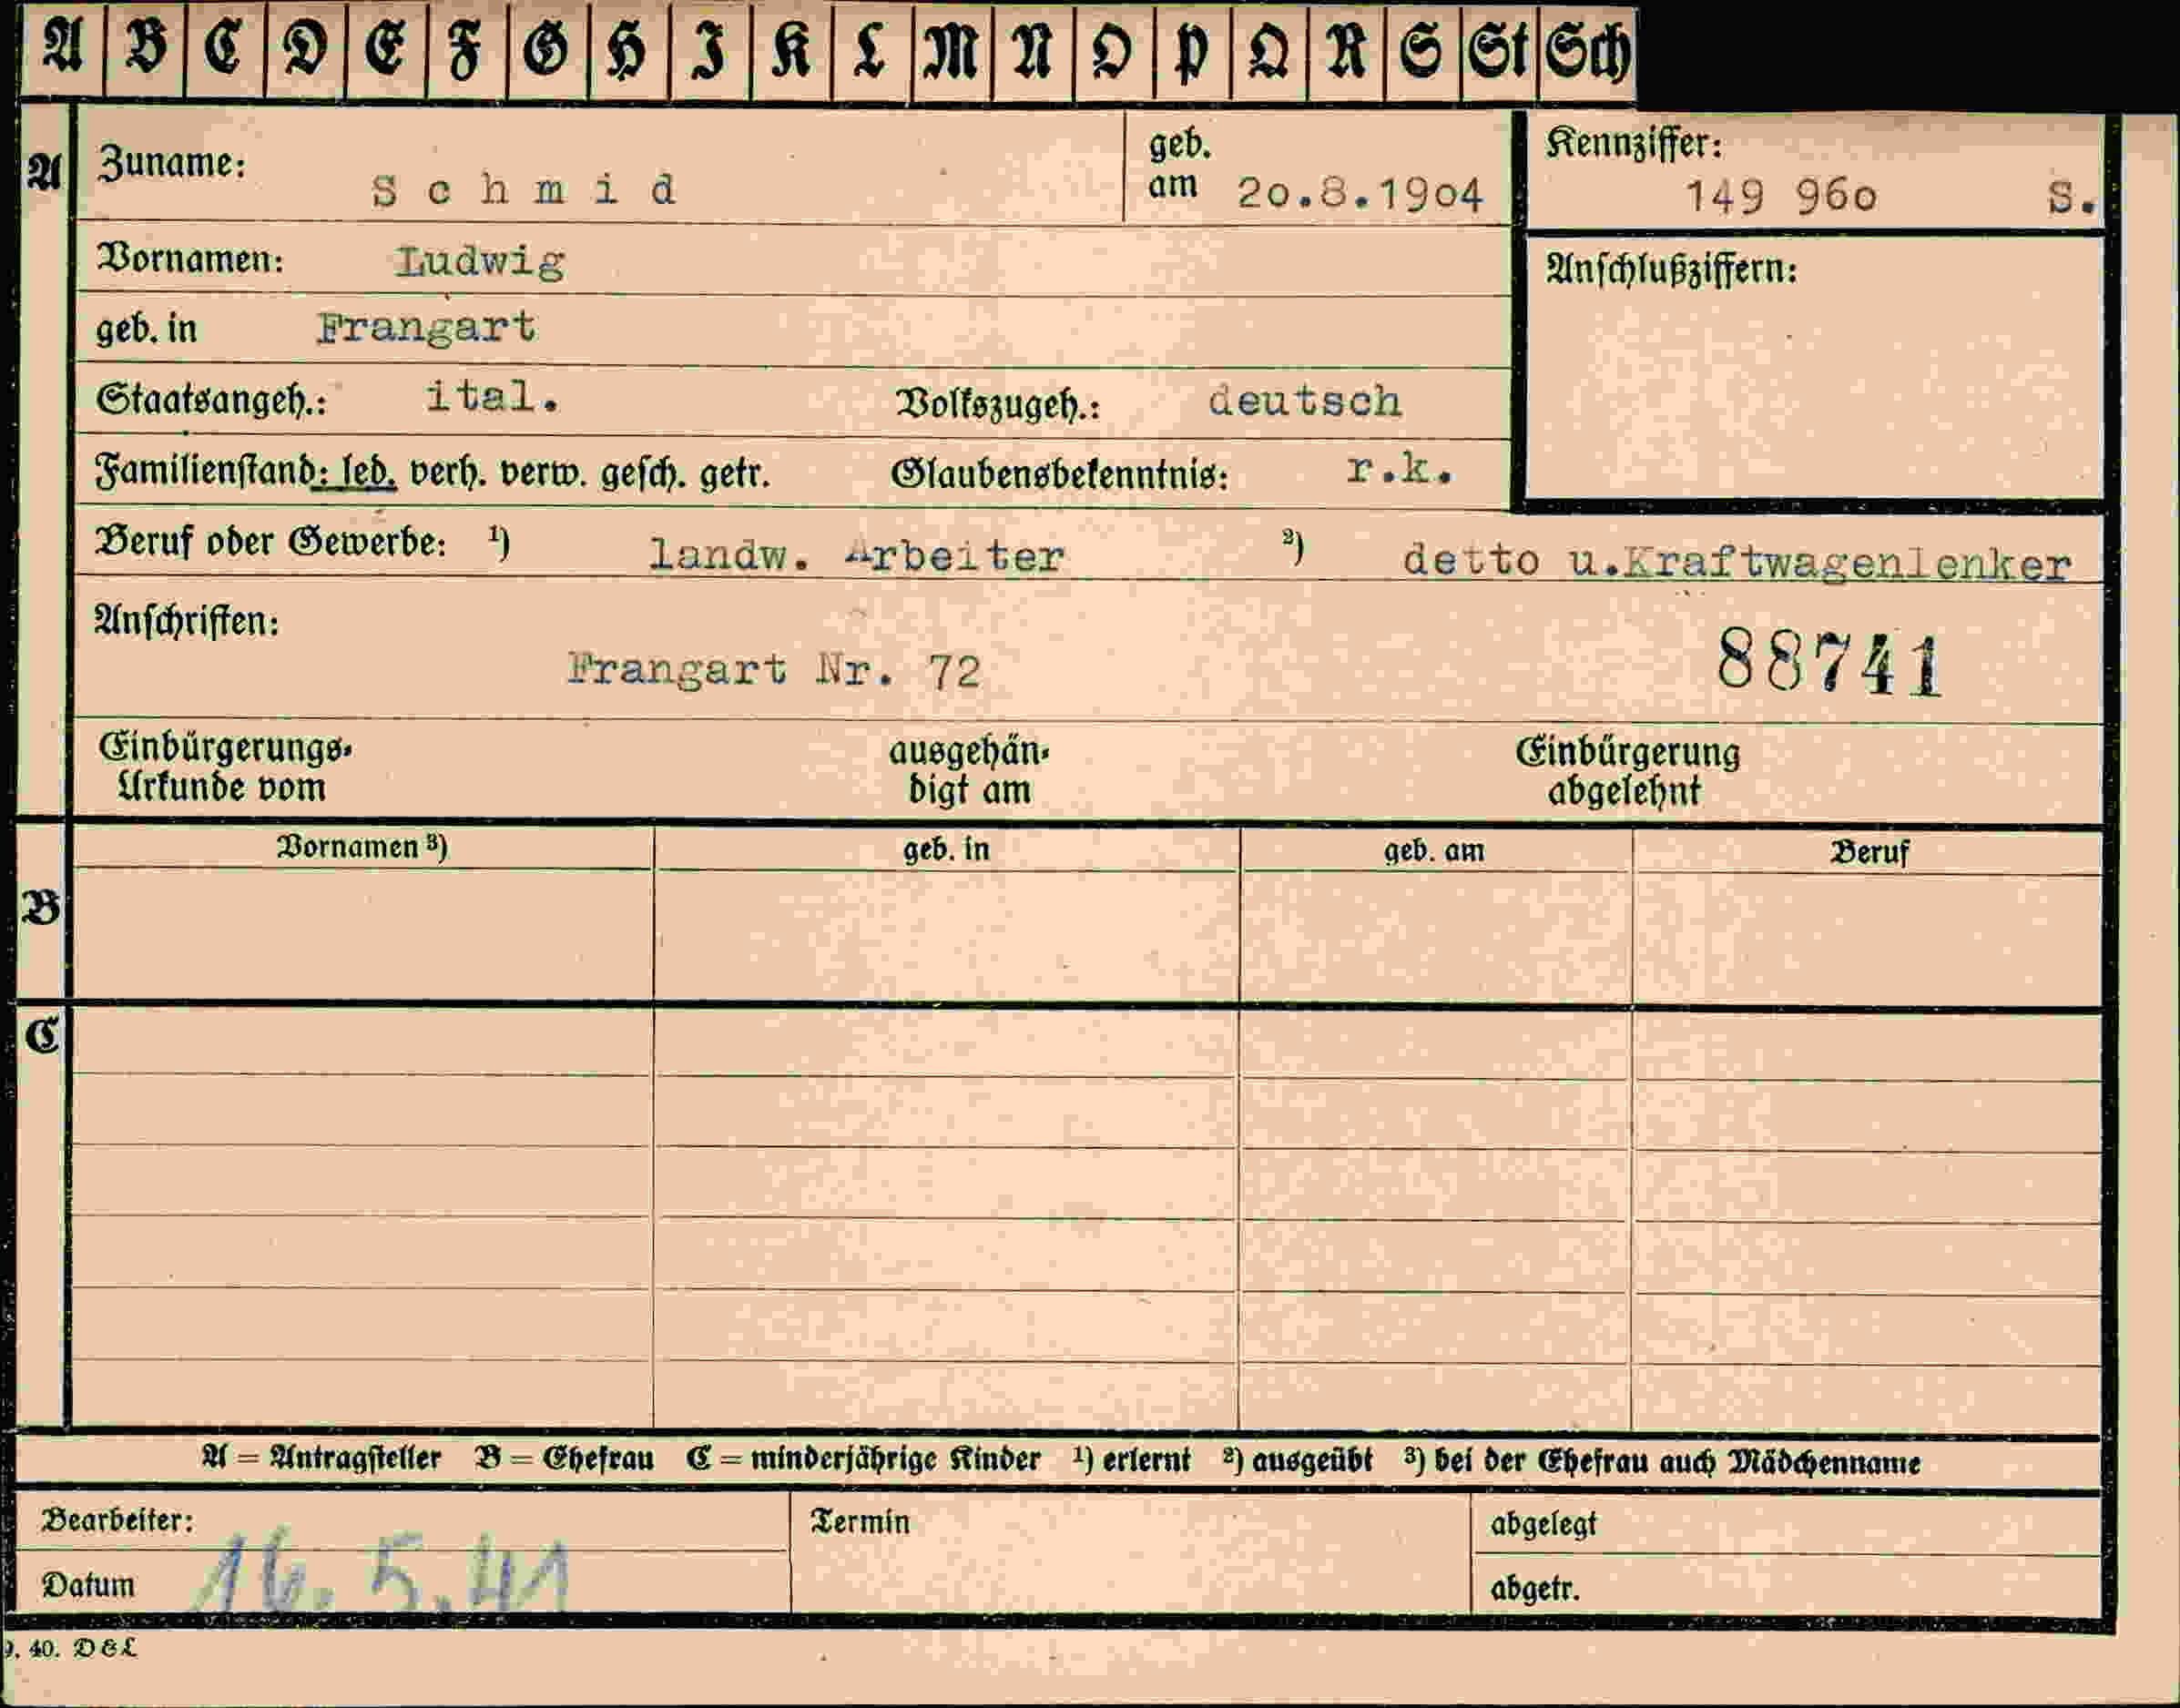 A B C D E F G H I K L M N O P Q R S St Sch
A Zuname: Schmid geb. am 2o.8.19o4 Kennziffer: 149 96o S.
Vornamen: Ludwig Anschlußziffern:
geb. in Frangart
Staatsangeh.: ital. Volkszugeh.: deutsch
Familienstand: led. verh. verw. gesch. getr. Glaubensbekenntnis: r.k.
Beruf oder Gewerbe: 1) landw. Arbeiter 2) detto u.Kraftwagenlenker
Anschriften:
Frangart Nr. 72 88741
Einbürgerungs- ausgehän- Einbürgerung
Urkunde vom digt am abgelehnt
Vornamen 3) geb. in geb. am Beruf
B
C
A = Antragsteller B = Ehefrau C = minderjährige Kinder 1) erlernt 2) ausgeübt 3) bei der Ehefrau auch Mädchenname
Bearbeiter: Termin abgelegt
Datum 16.5.41 abgetr.
9. 40. D & L